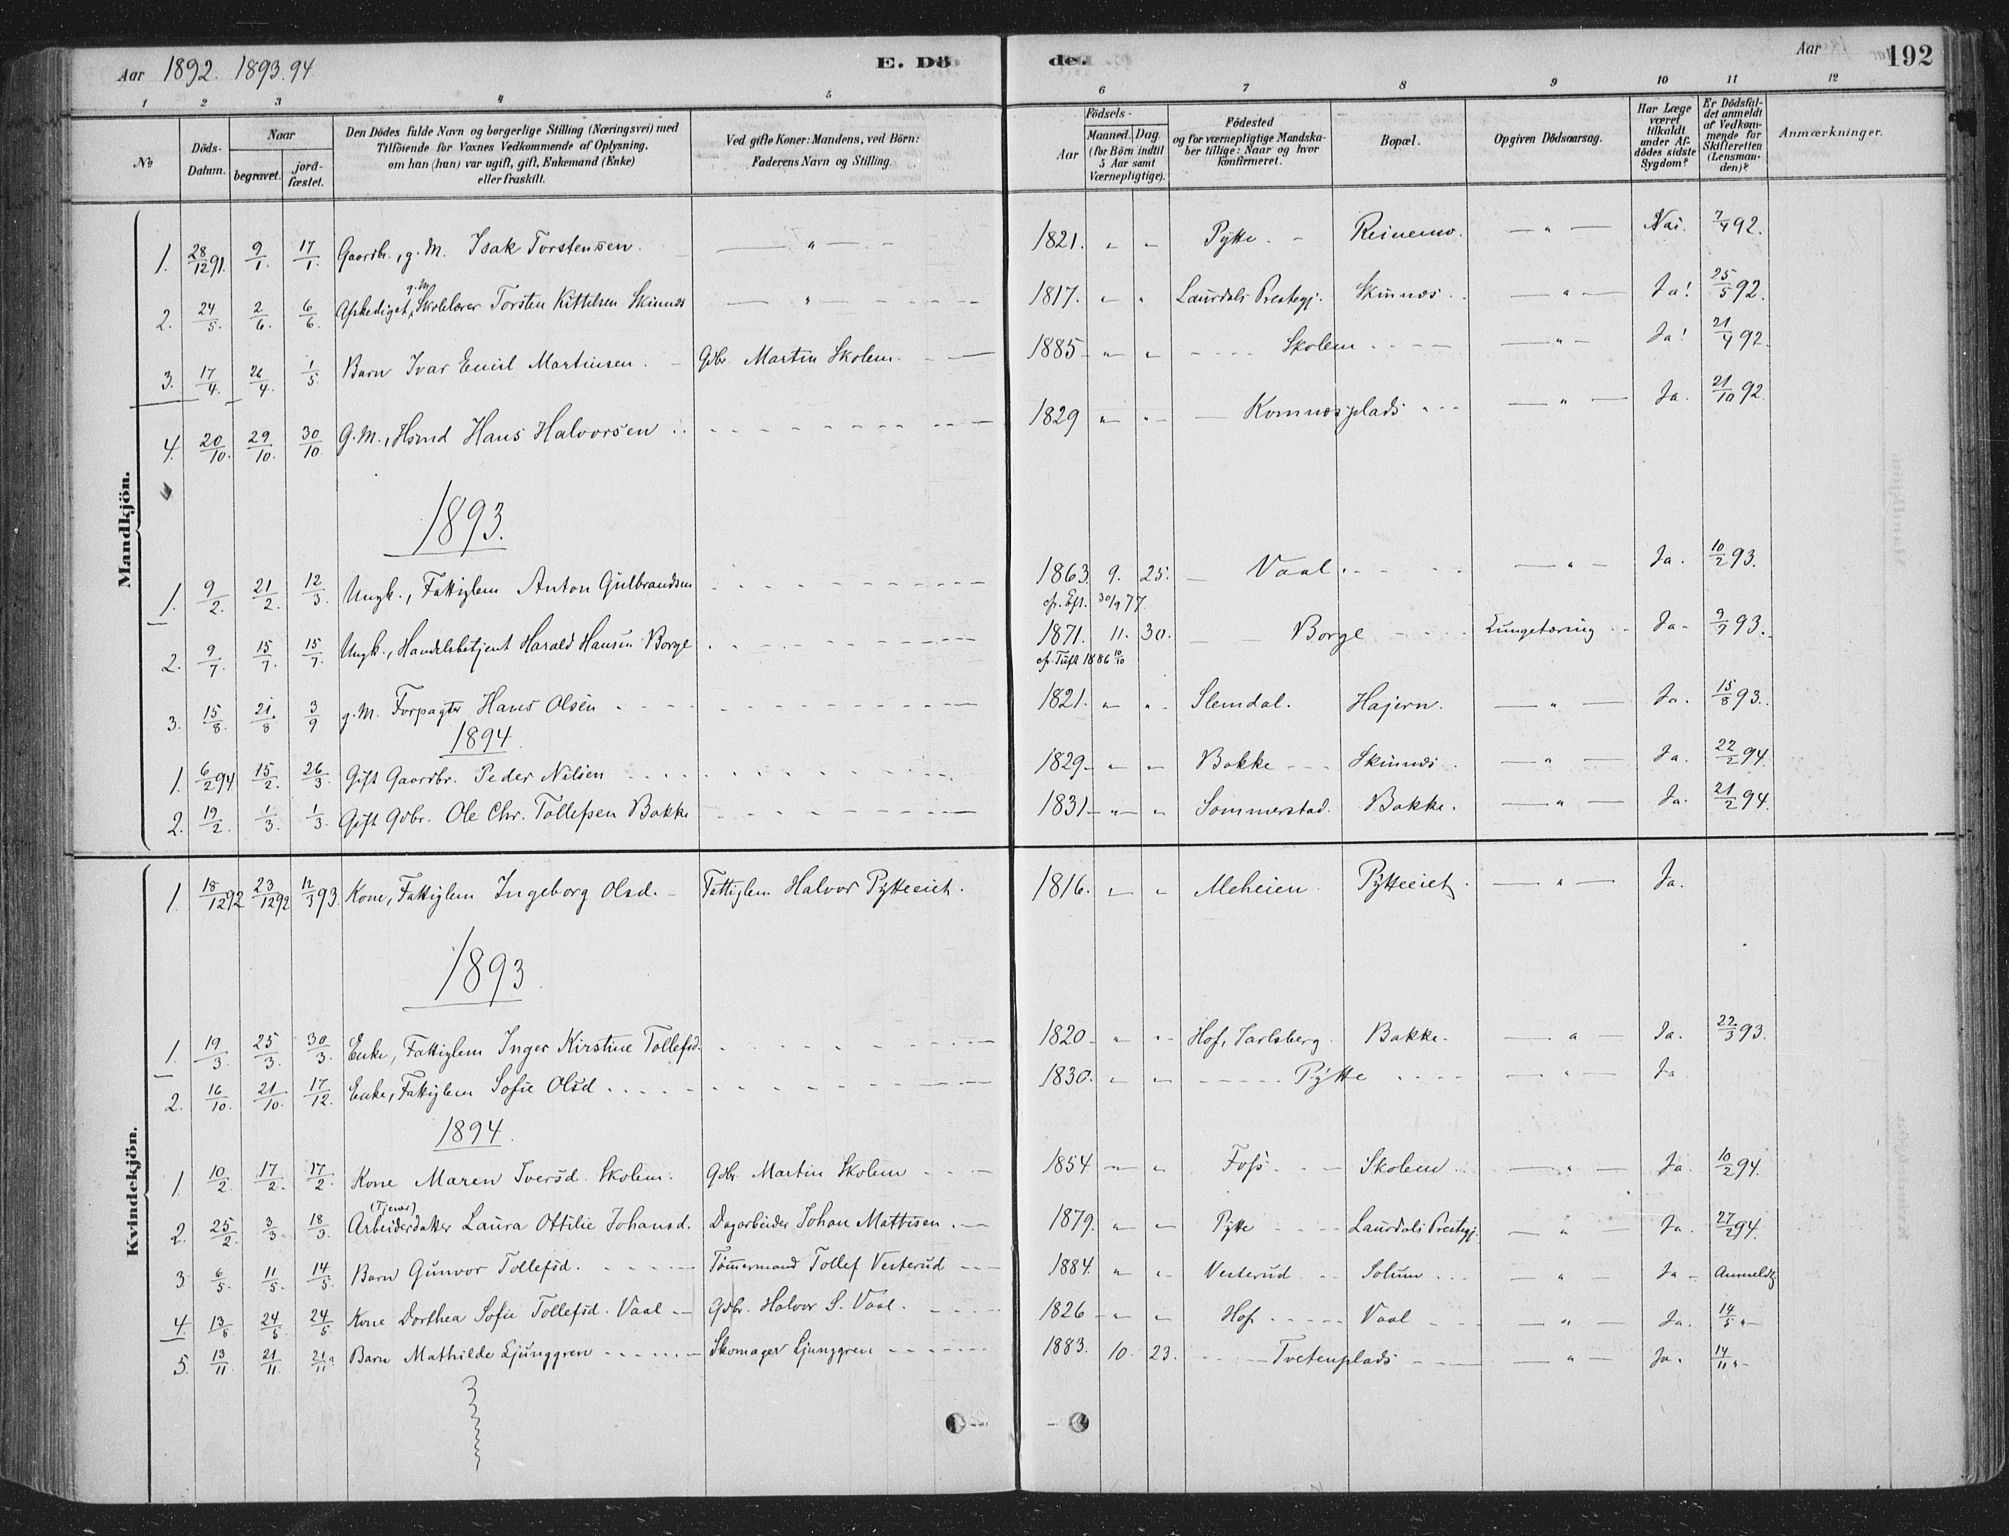 Aar 1892. 1893. 94. E. Dö de. Aar 192
1 2 3 4 5 6 7 8 9 10 11 12
No Döds-Datum. Naar begravet. jordfæstet. Den Dödes fulde Navn og borgerlige Stilling (Næringsvei) med Tilföiende for Voxnes Vedkommende af Oplysning, om han (hun) var ugift, gift, Enkemand (Enke) eller fraskilt. Ved gifte Koner: Mandens, ved Börn: Faderens Navn og Stilling. Födsels- Aar Maaned. Dag. (for Börn indtil 5 Aar samt Værnepligtige). Födested og for værnepligtige Mandskaber tillige: Naar og hvor konfirmeret. Bopæl. Opgiven Dödsaarsag. Har Læge været tilkaldt under Afdödes sidste Sygdom? Er Dödsfaldet anmeldt af Vedkommende for Skifteretten (Lensmanden)? Anmærkninger.
Mandkjön.
1. 28/12 91. 9/1. 17/1. Gaardbr., g. M. Isak Torstensen. — " — 1821. " " Pytte. Reinemo. — " — Nei. 7/4 92.
2. 24/5. 2/6. 6/6. Afskediget, g. M. Skolelærer Torsten Kittelsen Skinnes — " — 1817. " " Laurdals Prestegj. Skinnes. — " — Ja! 25/5 92.
3. 17/4. 26/4. 1/5. Barn Ivar Emil Martinsen. Gdbr. Martin Skolem. 1885 " " Skolem — " — Ja! 21/4 92.
4. 20/10. 29/10. 30/10. G. M., Hsmd Hans Halvorsen 1829 " " Komnæsplads — " — Ja. 21/10 92.
1893.
1. 9/2. 21/2. 12/3. Ungk., Fattiglem Anton Gulbrandsen 1863. 9. 25. Vaal. — " — Ja. 10/2 93.
cf. Eft. 30/9 77.
2. 9/7. 15/7. 15/7. Ungk., Handelsbetjent Harald Hansen Borge 1871. 11. 30. Borge Lungetæring Ja. 9/7 93.
cf. Tufl 1886 10/10
3. 15/8. 21/8 3/9 g. M. Forpagter Hans Olsen 1821. " " Slemdal. Hajern. — " — Ja. 15/8 93.
1894
1. 6/2 94 15/2. 26/3. Gift Gaardbr. Peder Nilsen 1829 " " Bakke Skinnes. — " — Ja. 22/2 94.
2. 19/2. 1/3. 1/3. Gift Gdbr. Ole Chr. Tollefsen Bakke 1831 " " Sommerstad. Bakke. — " — Ja. 21/2 94.
Kvindekjön.
1. 18/12 92 23/12 92 12/3 93. Kone, Fattiglem Ingeborg Olsd. Fattiglem Halvor Pytteeiet. 1816. " " Meheien. Pytteeiet. — " — Ja.
1893
1. 19/3. 25/3. 30/3. Enke, Fattiglem Inger Kirstine Tollefsd. 1820 " " Hof, Jarlsberg. Bakke. — " — Ja. 22/3 93.
2. 16/10. 21/10. 17/12. Enke, Fattiglem Sofie Olsd 1830. " " Pytte — " — Ja
1894.
1. 10/2. 17/2. 17/2. Kone Maren Iversd. Skolem. Gdbr. Martin Skolem 1854 " " Foss. Skolem — " — Ja. 10/2 94.
(Tjener)
2. 25/2. 3/3. 18/3. Arbeiderdatter Laura Ottilie Johansd. Dagarbeider Johan Mathisen. 1879. " " Pytte Laurdals Prestegj. — " — Ja. 27/2 94.
3 6/5. 11/5. 14/5. Barn Gunvor Tollefsd. Tömmermand Tollef Vesterud 1884. " " Vesterud Solum — " — Ja Anmeldt
4. 13/5 24/5. 24/5. Kone Dorthea Sofie Tollefsd. Vaal Gdbr. Halvor S. Vaal. 1826 " " Hof Vaal — " — Ja. 14/5 "
5. 13/11 21/11. 21/11. Barn Mathilde Ljunggren Skomager Ljunggren 1883. 10. 23. Tvetenplads — " — Ja. 14/11 "